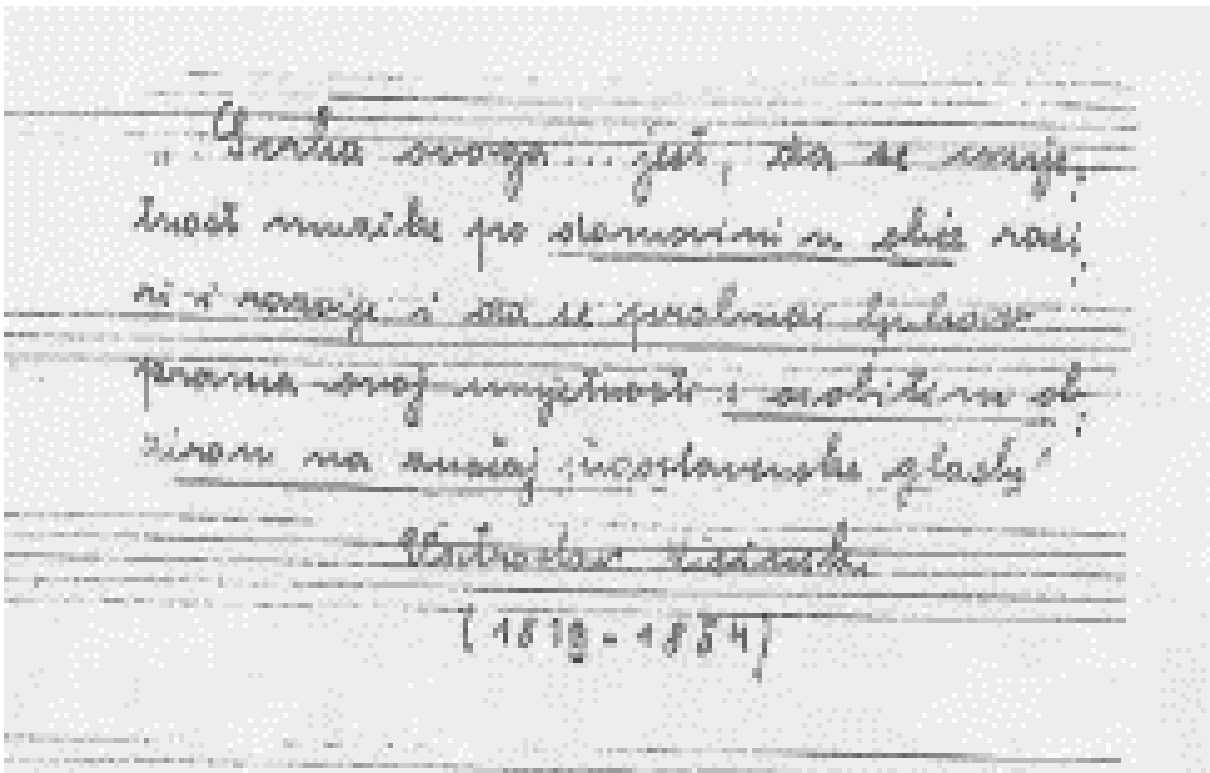 „Svrha ovoga ... jest, da se umje-
tnost muzike po domovini u obće razi-
ri i razvije i da se probudi ljubav
prama ovoj umjetnosti s osobitim ob-
zirom na
Vatroslav Lisinski
(1819 - 1854)